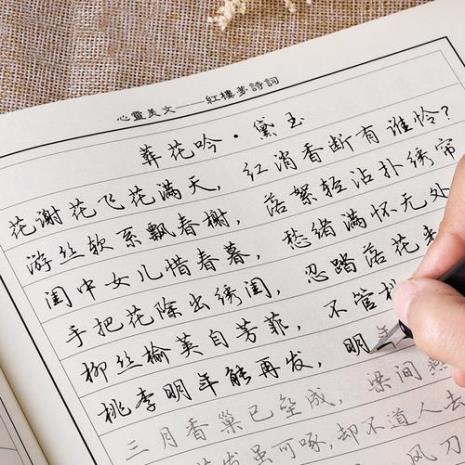 心靈美文——紅樓夢詩詞
葬花吟·黛玉
花谢花飞花满天，红消香断有谁怜？
游丝软系飘春榭，落絮轻沾扑绣帘
闺中女儿惜春暮，愁绪满怀无处
手把花除出绣闺，忍踏落花来
柳丝榆荚自芳菲，不管
桃李明年能再发，明年
三月香巢已垒成，梁间燕
发虽可啄，却不道人去
风刀